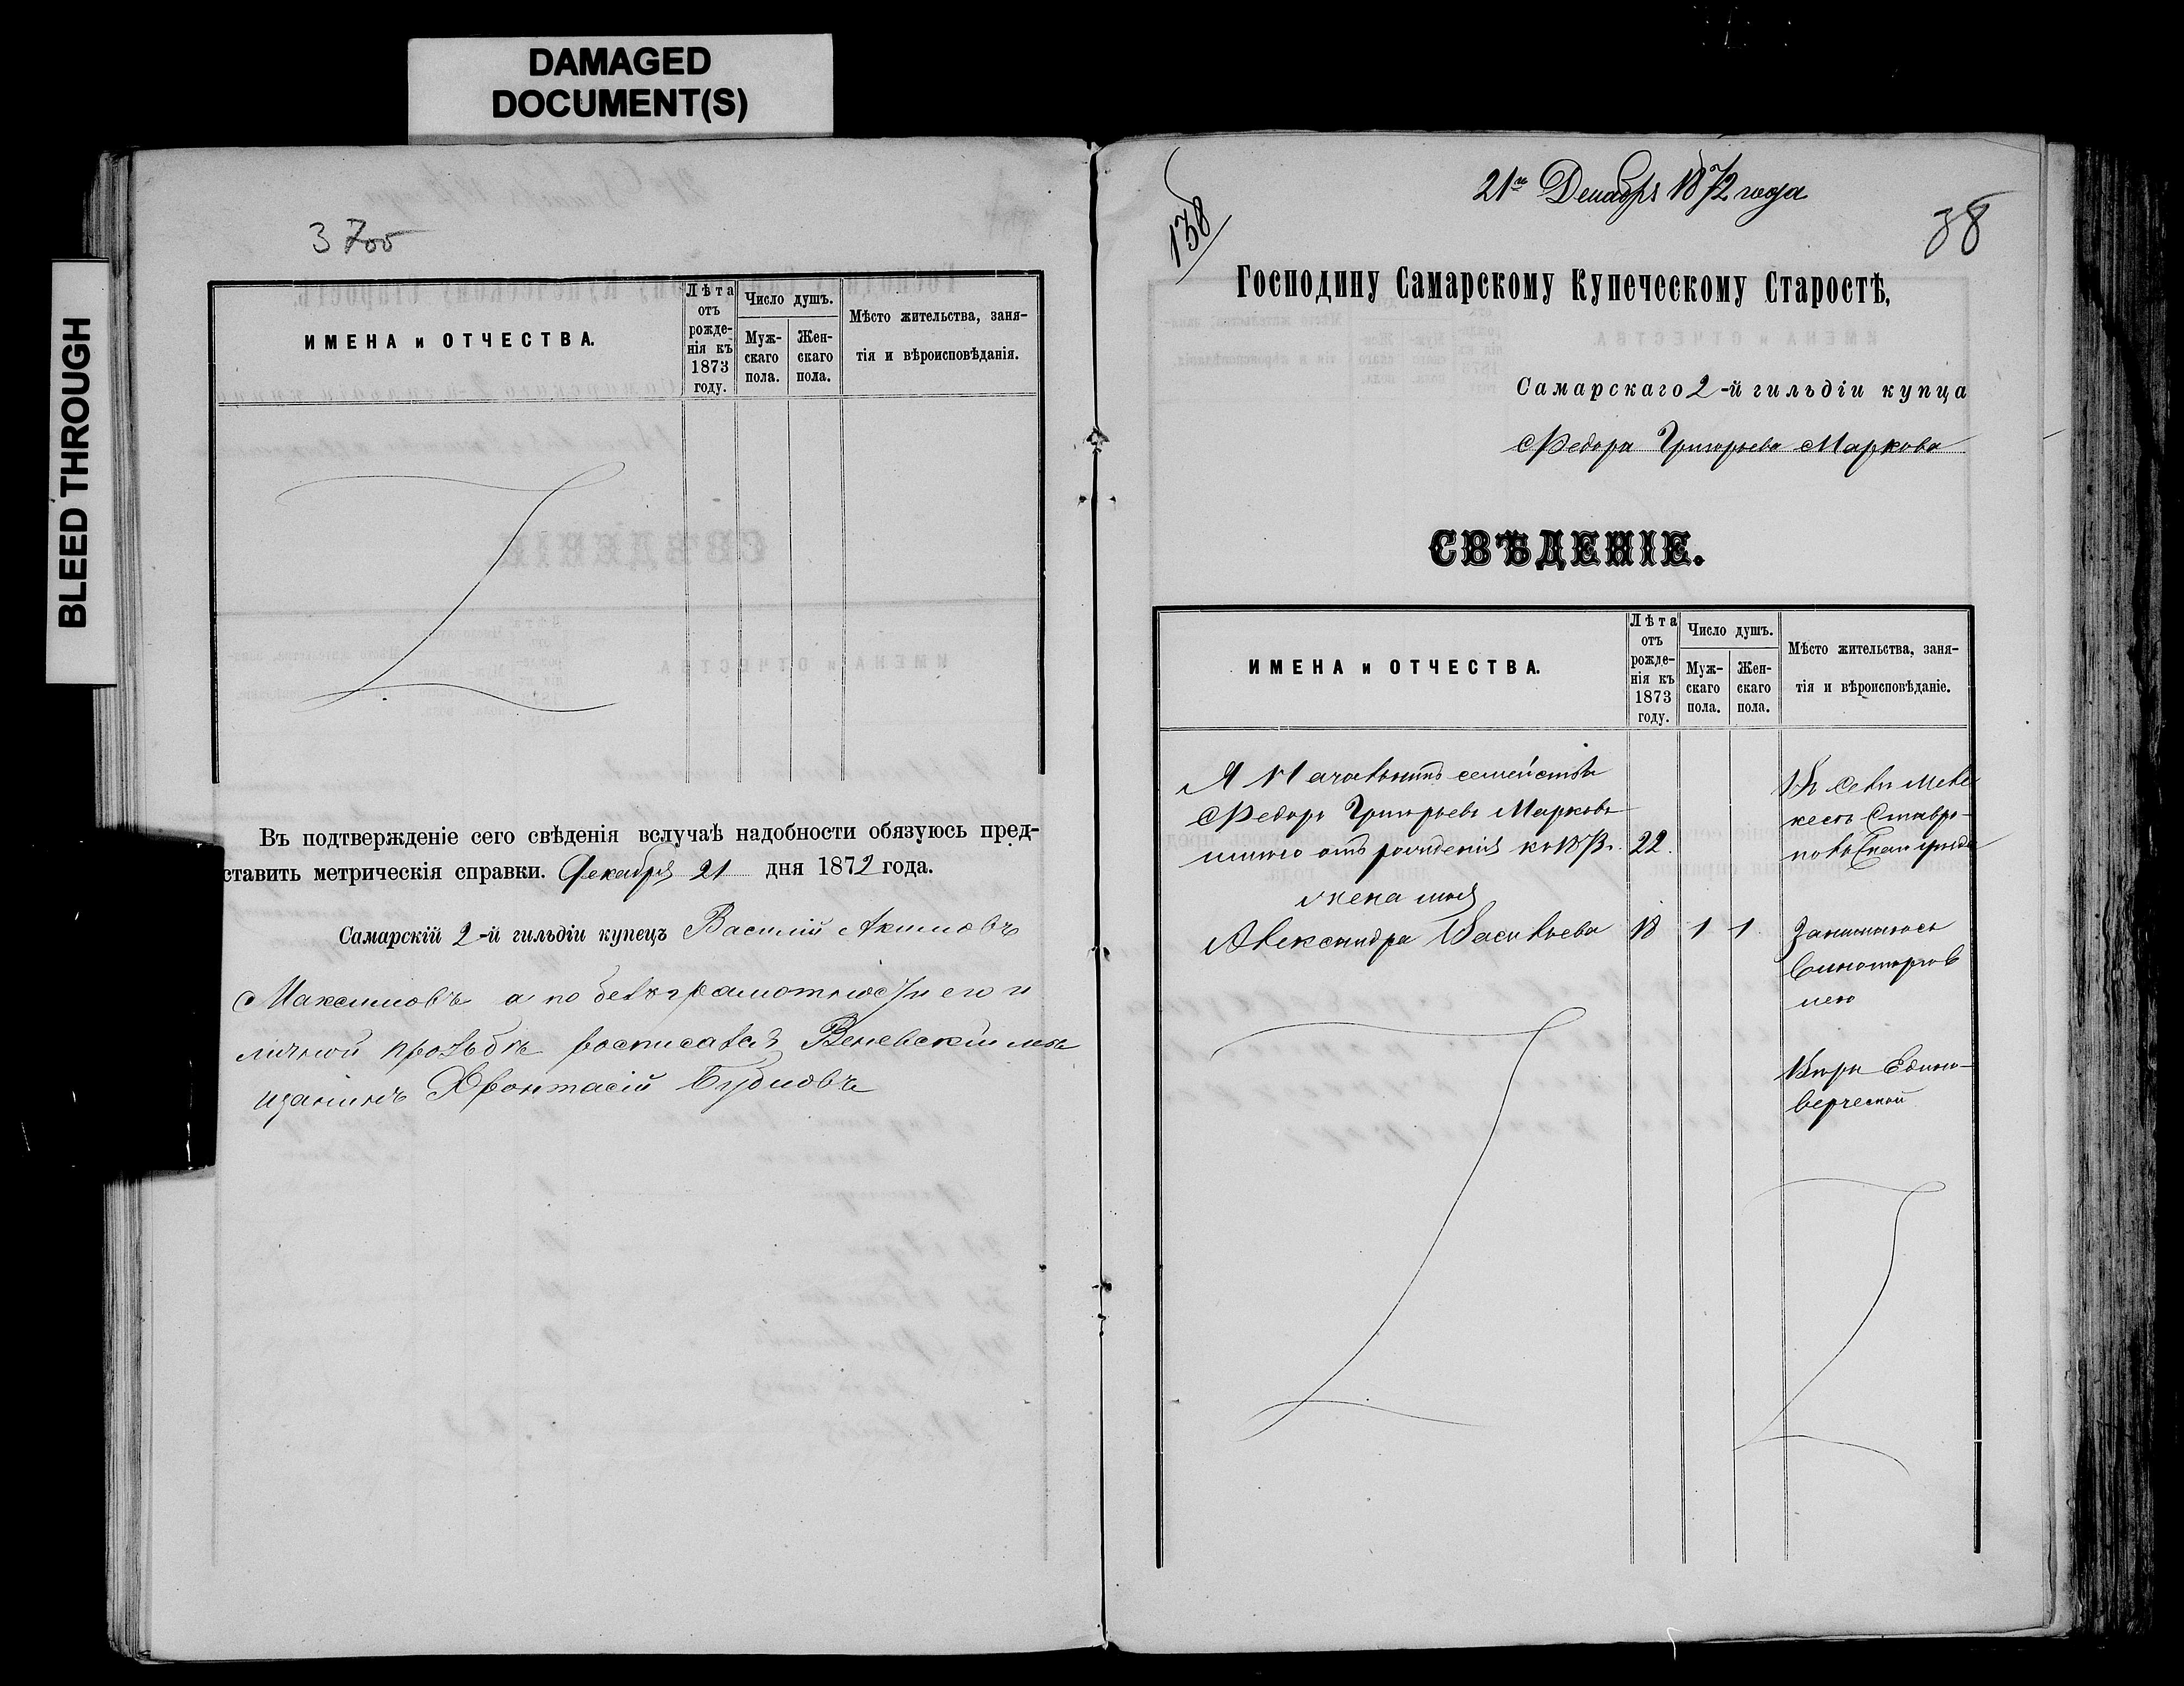 DAMAGED
DOCUMENT(S)
BLEED THROUGH
3 700
ИМЕНА и ОТЧЕСТВА.
Лѣта
отъ
рожде-
нія къ
1873
году.
Число душъ.
Муж-
скаго
пола.
Жен-
скаго
пола.
Мѣсто жительства, заня-
тія и вѣроисповѣданія.
Въ подтвержденіе сего свѣденія вслучаѣ надобности обязуюсь пред-
ставить метрическія справки. Декабря 21 дня 1872 года.
Самарскій 2-й гильдіи купецъ Василій Акимовъ
Максимовъ а по безъграмотности его и
личной прозьбѣ росписался Веневскій ме
щанинъ
138
21го Декабря 1872 года
38
Господину Самарскому Купеческому Старостѣ,
Самарскаго 2-й гильдіи купца
Федора Григорьева Маркова
СВѢДЕНІЕ.
ИМЕНА и ОТЧЕСТВА.
Лѣта
отъ
рожде-
нія къ
1873
году.
Число душъ.
Муж-
скаго
пола.
Жен-
скаго
пола.
Мѣсто жительства, заня-
тія и вѣроисповѣданіе.
Я Началникъ семейства
Федоръ Григорьевъ Марковъ
мине отъ рожденія к 1873г. 22.
жена моя
Александра Васильева 18 1 1
Вь Селе Меле
кесъ Ставро-
Занимаюсь
виноторгов
лею
Веры Едино-
верческой